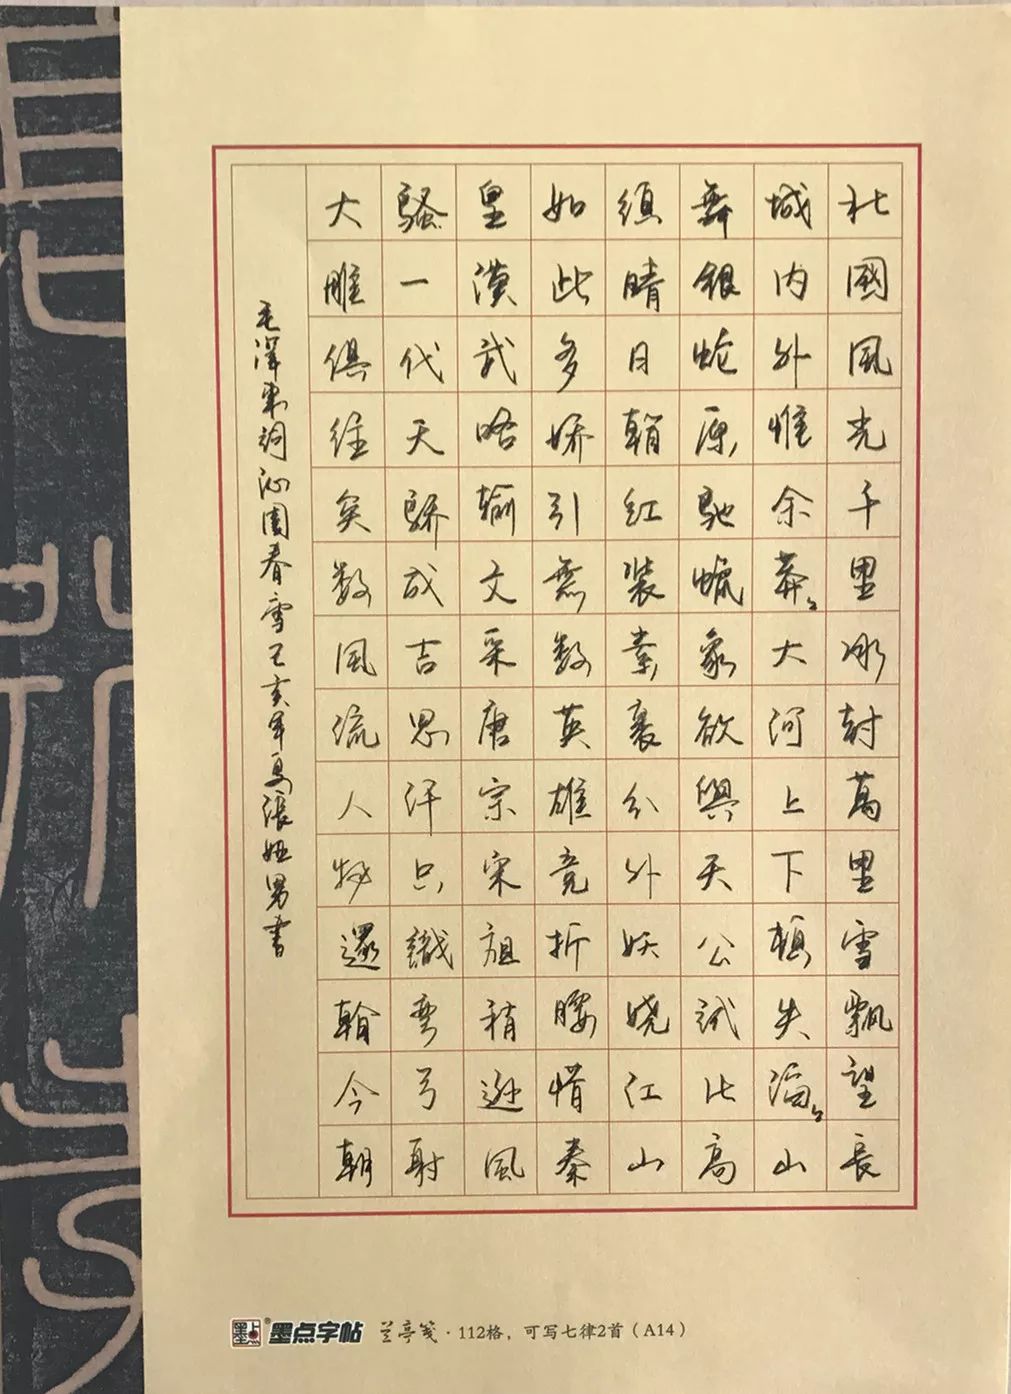 北國風光千里冰封萬里雪飄望長
城内外惟余莽〻大河上下頓失滔〻山
舞銀蛇原馳蠟象欲與天公試比高
須晴日看红装素裹分外妖娆江山
如此多娇引無数英雄竞折腰惜秦
皇漢武略輸文采唐宗宋祖稍遜風
騷一代天骄成吉思汗只識彎弓射
大雕俱往矣数風流人物還看今朝
毛澤東詞沁園春雪己亥年夏張男書
墨点字帖 兰亭笺·112格，可写七律2首（A14）